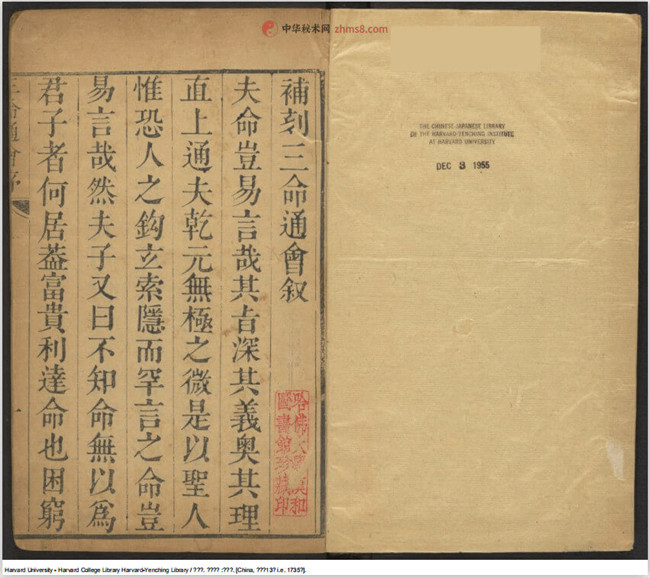 中华秘术网 zhms8.com
THE CHINESE-JAPANESE LIBRARY
OF THE HARVARD-YENCHING INSTITUTE
AT HARVARD UNIVERSITY
DEC 3 1955
補刻三命通會叙
夫命豈易言哉其㫖深其義奧其理
直上通夫乾元無極之微是以聖人
惟恐人之鈎玄索隱而罕言之命豈
易言哉然夫子又曰不知命無以爲
君子者何居葢富貴利達命也困窮
三命通會序
一
哈佛大學漢和
圖書館珍藏印
Harvard University - Harvard College Library Harvard-Yenching Library / ???. ???? :???. [China, ???13? i.e. 1735?].